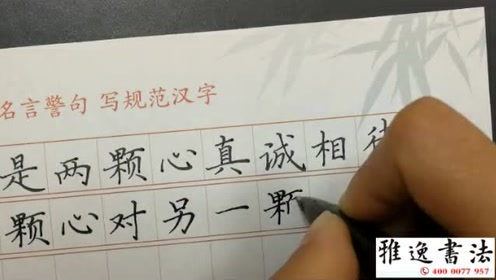 名言警句 写规范汉字
是两颗心真诚相待
颗心对另一颗
雅逸书法
400 0077 957